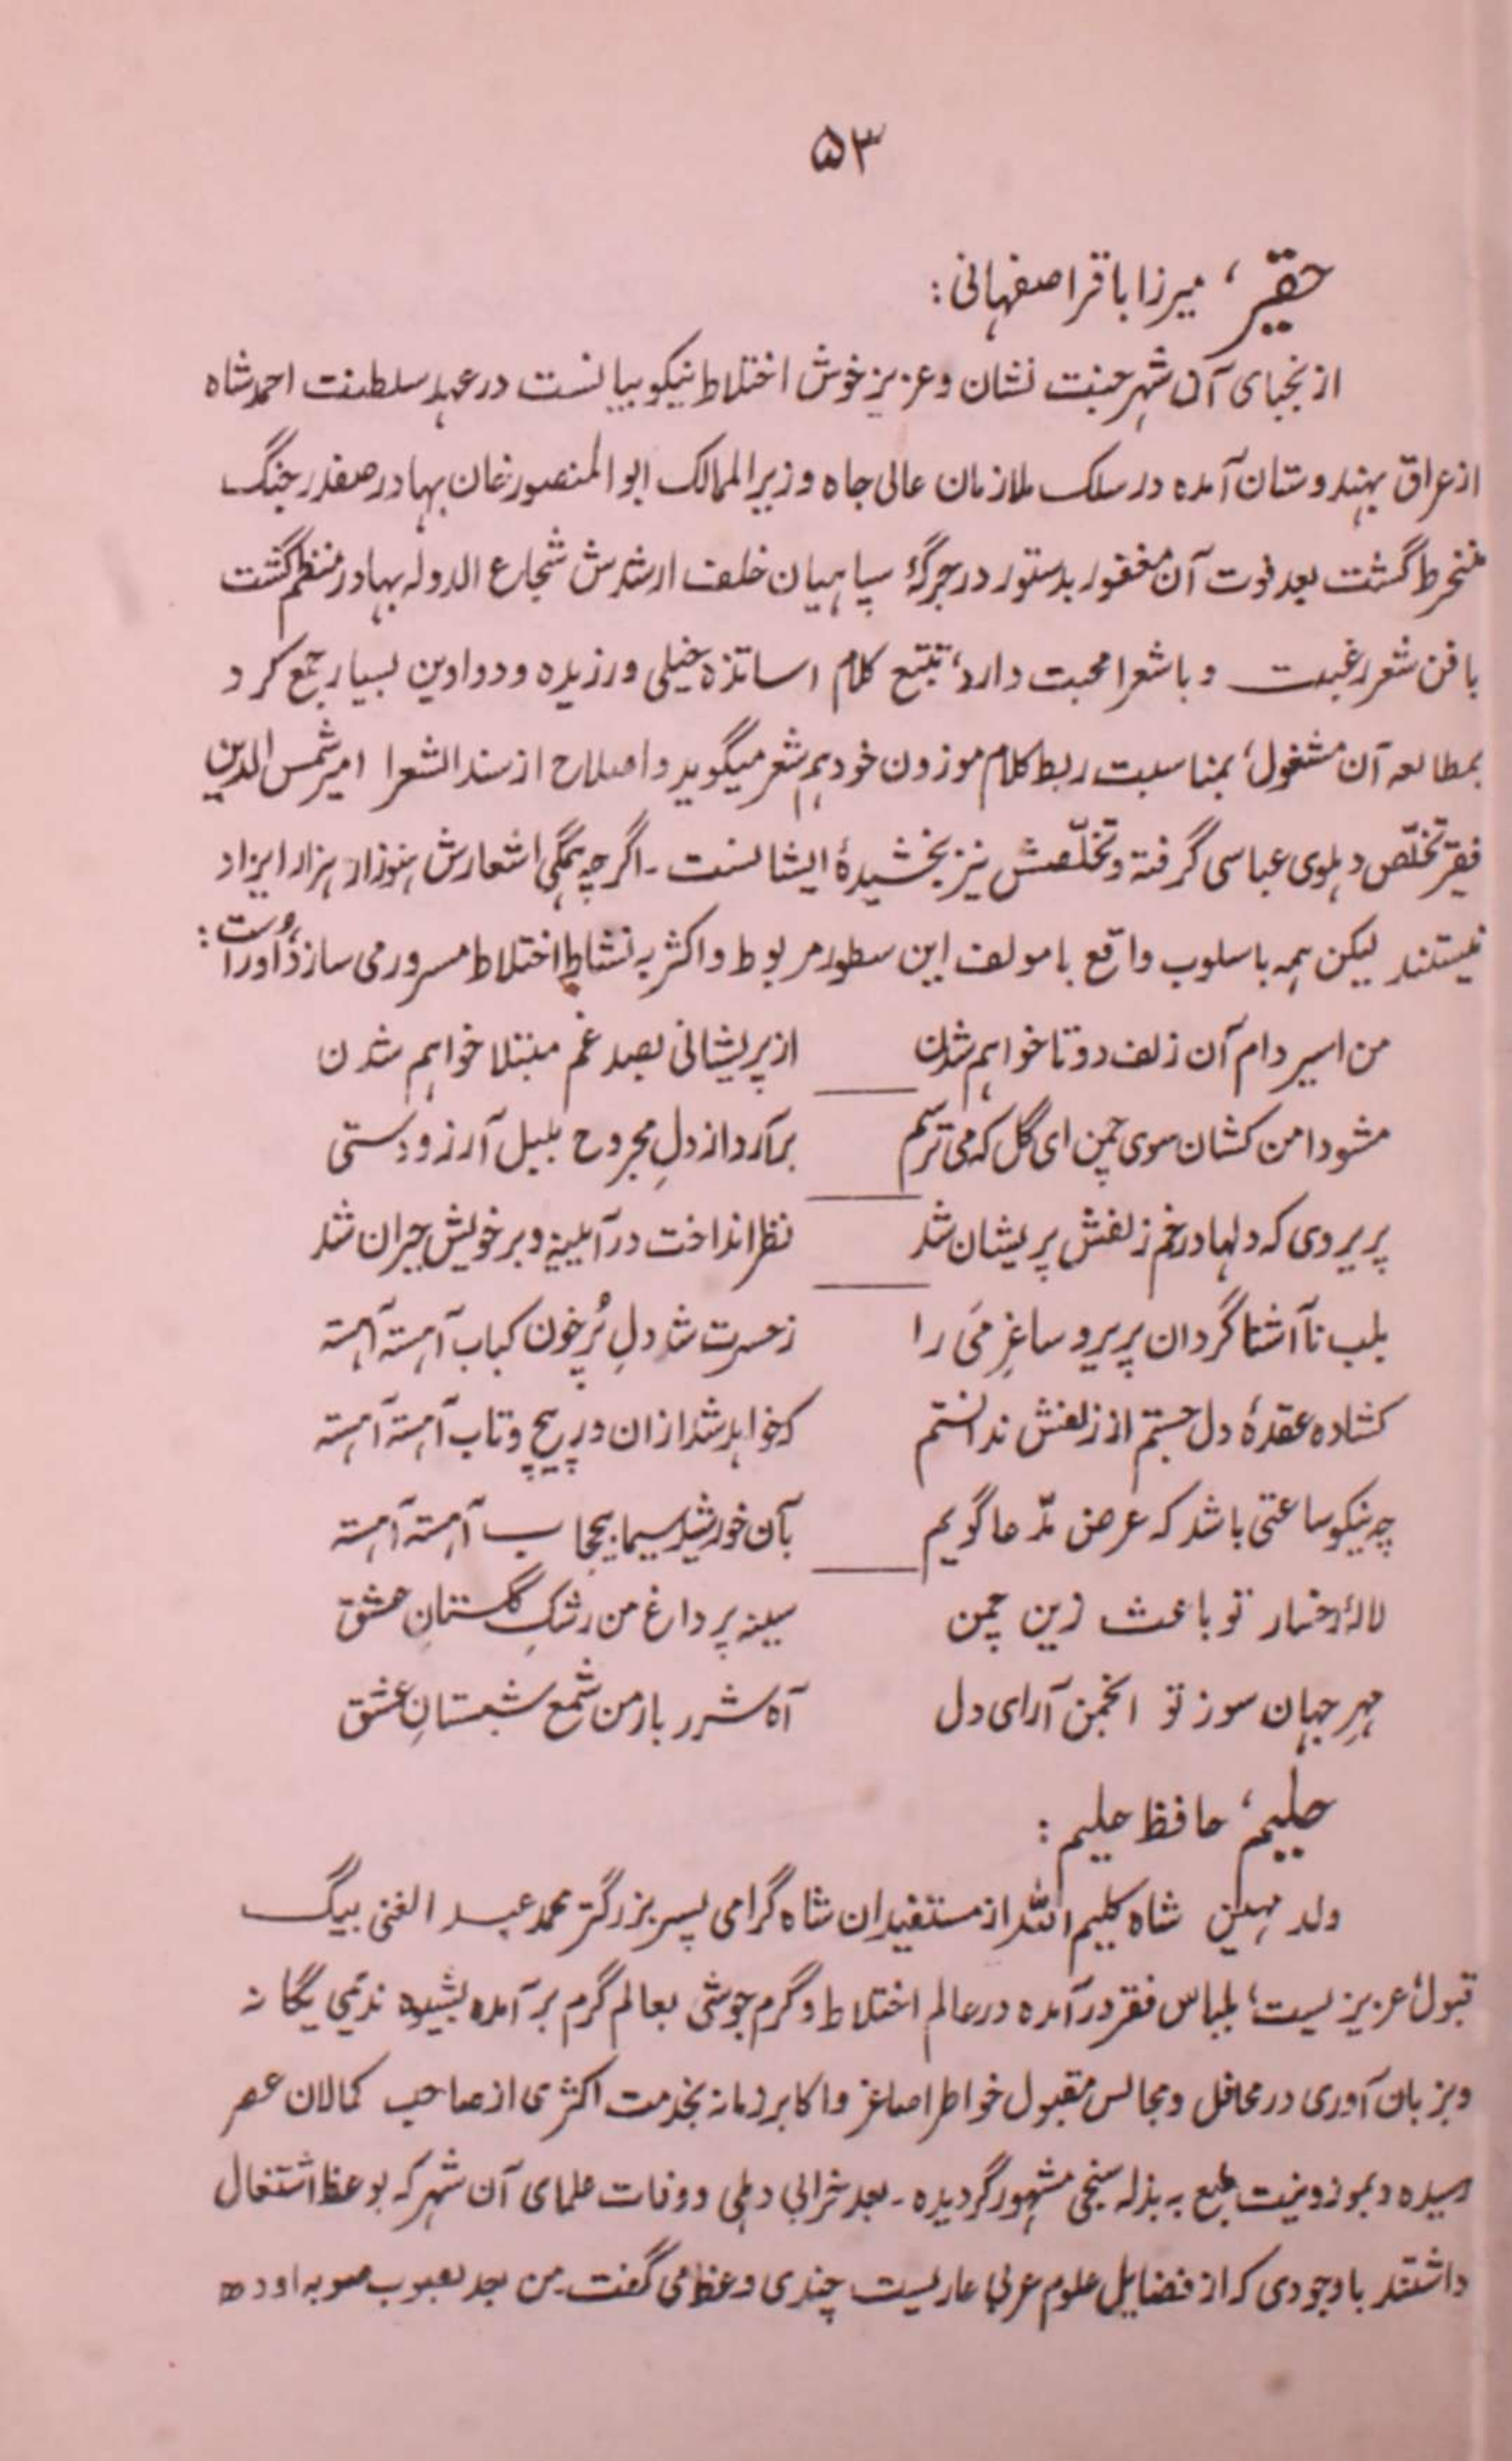 ۵۳
حقیر، میرزا باقر اصفهانی :
از نجبای آن شهر جنت نشان و عزیز خوش اختلاط نیکو بیانست در عهد سلطنت احمد شاه
از عراق بهندوستان آمده در سلک ملازمان عالی جاه وزیر الممالک ابو المنصور خان بهادر صفدر جنگ
منخرط گشت بعد فوت آن مغفور بدستور در جرگهٔ سپاهیان خلف ارشدش شجاع الدوله بهادر منتظم گشت
با فن شعر رغبت و با شعرا محبت دارد، تتبع کلام اساتذه خیلی ورزیده و دواوین بسیار جمع کرد
بمطالعه آن مشغول، بمناسبت ربط کلام موزون خود هم شعر میگوید و اصلاح از سند الشعرا امیر شمس الدین
فقیر تخلّص دهلوی عباسی گرفته و تخلّصش نیز بخشیدهٔ ایشانست - اگرچه همگی اشعارش هنوز از هزار ایزاد
نیستند لیکن همه باسلوب واقع با مولف این سطور مربوط و اکثر به نشاط اختلاط مسرور می سازد، اوراست :
من اسیر دام آن زلف دوتا خواهم شدن    از پریشانی بصد غم مبتلا خواهم شدن
مشو دامن کشان سوی چمن ای گل که می ترسم    برآرد از دلِ مجروح بلبل آرزو دستی
پریروی که دلها در خم زلفش پریشان شد    نظر انداخت در آیینه و بر خویش حیران شد
بلب نا آشنا گردان پریرو ساغرِ مَی را    ز حسرت شد دلِ پُر خون کباب آهسته آهسته
کشاده عقدهٔ دل جستم از زلفش ندانستم    که خواهد شد از ان در پیچ و تاب آهسته آهسته
چه نیکو ساعتی باشد که عرض مدّعا گویم    بآن خورشید سیما بیحجاب آهسته آهسته
لالهٔ رخسار تو باعث زین چمن    سینه پر داغ من رشکِ گلستانِ عشق
مهرِ جهان سوز تو انجمن آرای دل    آه شرر بار من شمع شبستانِ عشق
حلیم، حافظ حلیم :
ولد مهین شاه کلیم اللّٰه از مستفیدان شاه گرامی پسر بزرگتر محمد عبد الغنی بیگ
قبول، عزیزیست، بلباس فقر درآمده در عالم اختلاط و گرم جوشی بعالم گرم بر آمده بشیوه ندیمی یگانه
و بزبان آوری در محافل و مجالس مقبول خواطر اصاغر و اکابر زمانه بخدمت اکثری از صاحب کمالان عصر
رسیده و بموزونیت طبع به بذله سنجی مشهور گردیده - بعد خرابی دهلی و وفات علمای آن شهر که بوعظ اشتغال
داشتند باوجودی که از فضایل علوم عربی عاریست چندی وعظ می گفت - من بعد بصوب صوبه اوده